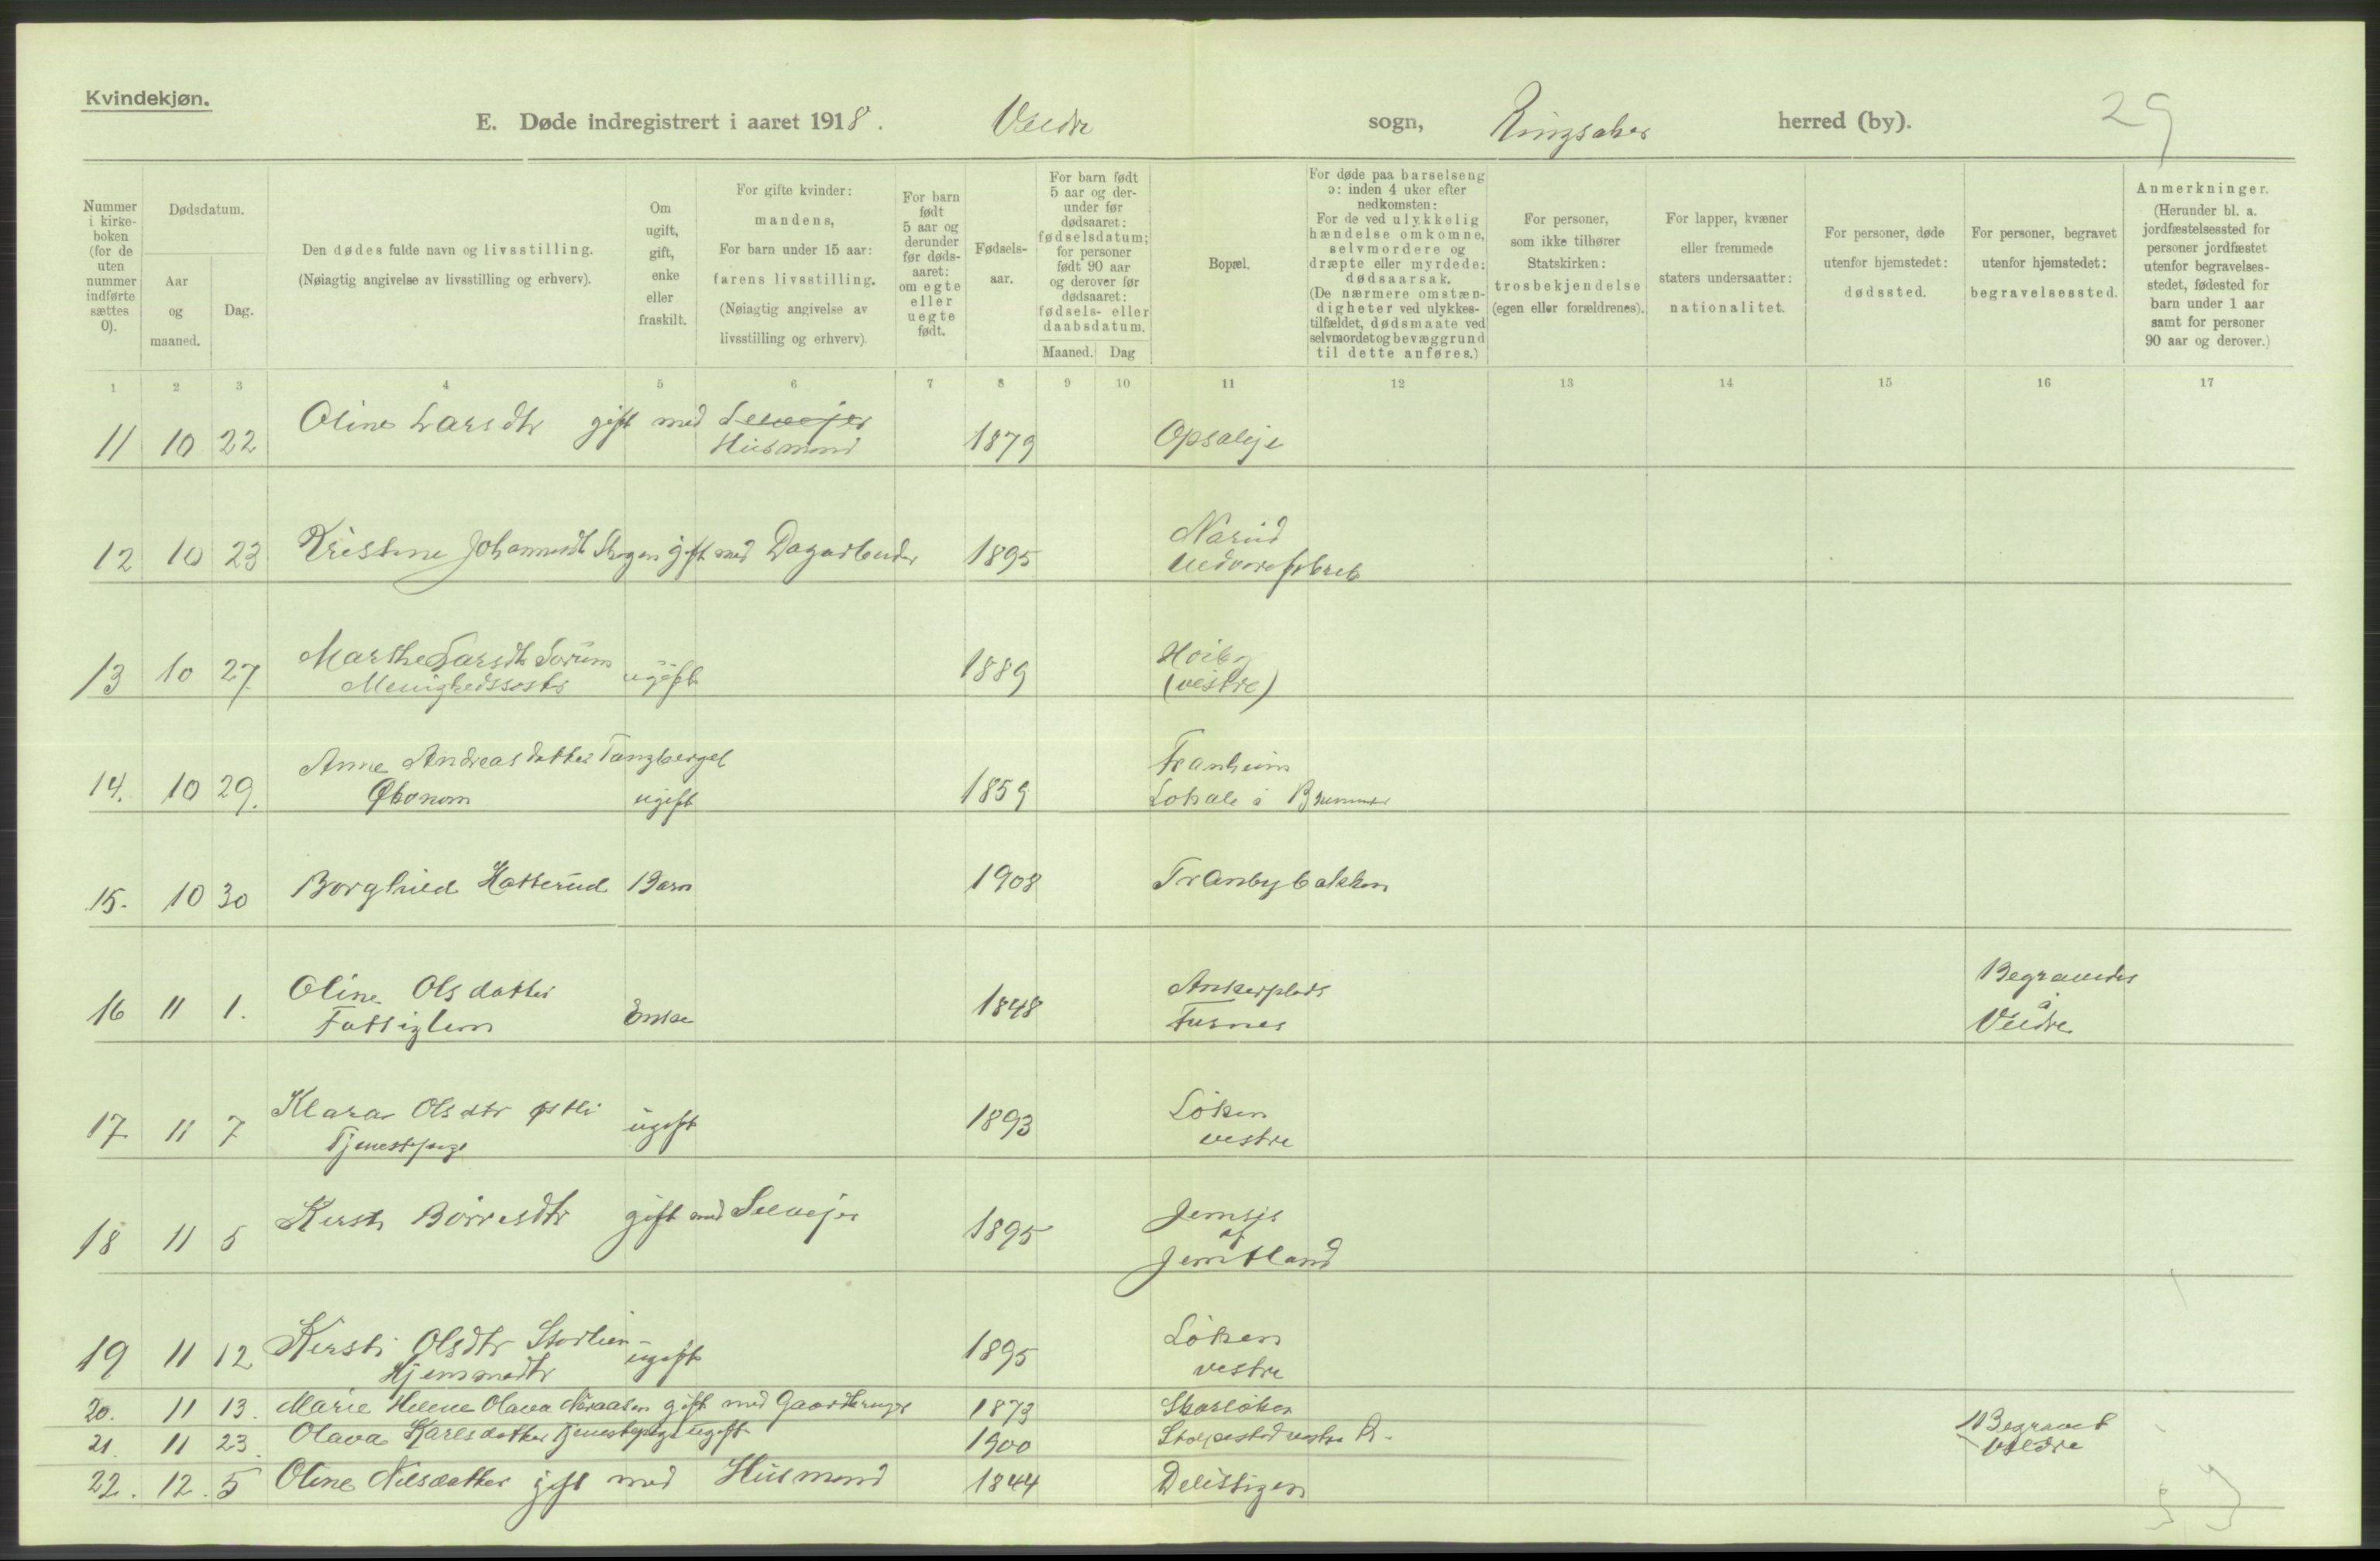 Kvindekjøn.
E. Døde indregistrert i aaret 1918. Veldre sogn, Ringsaker herred (by). 29
Nummer i kirke- boken (for de uten nummer indførte sættes 0).
Dødsdatum.
Aar og maaned.
Dag.
Den dødes fulde navn og livsstilling.
(Nøiagtig angivelse av livsstilling og erhverv).
Om ugift, gift, enke eller fraskilt.
For gifte kvinder: mandens,
For barn under 15 aar: farens livsstilling.
(Nøiagtig angivelse av livsstilling og erhverv).
For barn født 5 aar og derunder før døds- aaret: om egte eller uegte født.
Fødsels- aar.
For barn født 5 aar og der- under før dødsaaret: fødselsdatum; for personer født 90 aar og derover før dødsaaret: fødsels- eller daabsdatum.
Maaned. Dag
Bopæl.
For døde paa barselseng ɔ: inden 4 uker efter nedkomsten:
For de ved ulykkelig hændelse omkomne, selvmordere og dræpte eller myrdede: dødsaarsak.
(De nærmere omstæn- digheter ved ulykkes- tilfældet, dødsmaate ved selvmordet og bevæggrund til dette anføres.)
For personer, som ikke tilhører Statskirken: trosbekjendelse (egen eller forældrenes).
For lapper, kvæner eller fremmede staters undersaatter: nationalitet.
For personer, døde utenfor hjemstedet: dødssted.
For personer, begravet utenfor hjemstedet: begravelsessted.
Anmerkninger.
(Herunder bl. a. jordfæstelsessted for personer jordfæstet utenfor begravelses- stedet, fødested for barn under 1 aar samt for personer 90 aar og derover.)
1 2 3 4 5 6 7 8 9 10 11 12 13 14 15 16 17
11 10 22 Oline Larsdtr gift med Selvejer 1879 Opsaleje
Husmand
12 10 23 Kristine Johannesdt Skogen gift med Dagarbeider 1895 Narud
Uldvarefabrik
13 10 27 Marthe Larsdtr Sørum ugift 1889 Høiby
Menighedssøster (vestre)
14. 10 29. Anne Andreasdatter Tangberget 1859 Franheim
Økonom ugift Lokale i
15. 10 30 Borghild Hatterud Barn 1908 Tranbybakken
16 11 1. Oline Olsdatter Enke 1848 Ankerplads Begravedes
Fattiglem Furnes å Veldre
17 11 7 Klara Olsdtr Østli ugift 1893 Løken
Tjenestepige vestre
18 11 5 Kirsti Børresdtr gift med Selvejer 1895
af
Jemtland
19 11 12 Kirsti Olsdtr Storlien ugift 1895 Løken
Hjemmedtr vestre
20. 11 13. Marie Helene Olava Naraasen gift med Gaardbruger 1873 Skarløken
21. 11 23. Olava Karlsdatter Tjenestepige ugift 1900 vestre R. Begravet
Veldre
22. 12. 5 Oline Nilsdatter gift med Husmand 1844 Delistigen